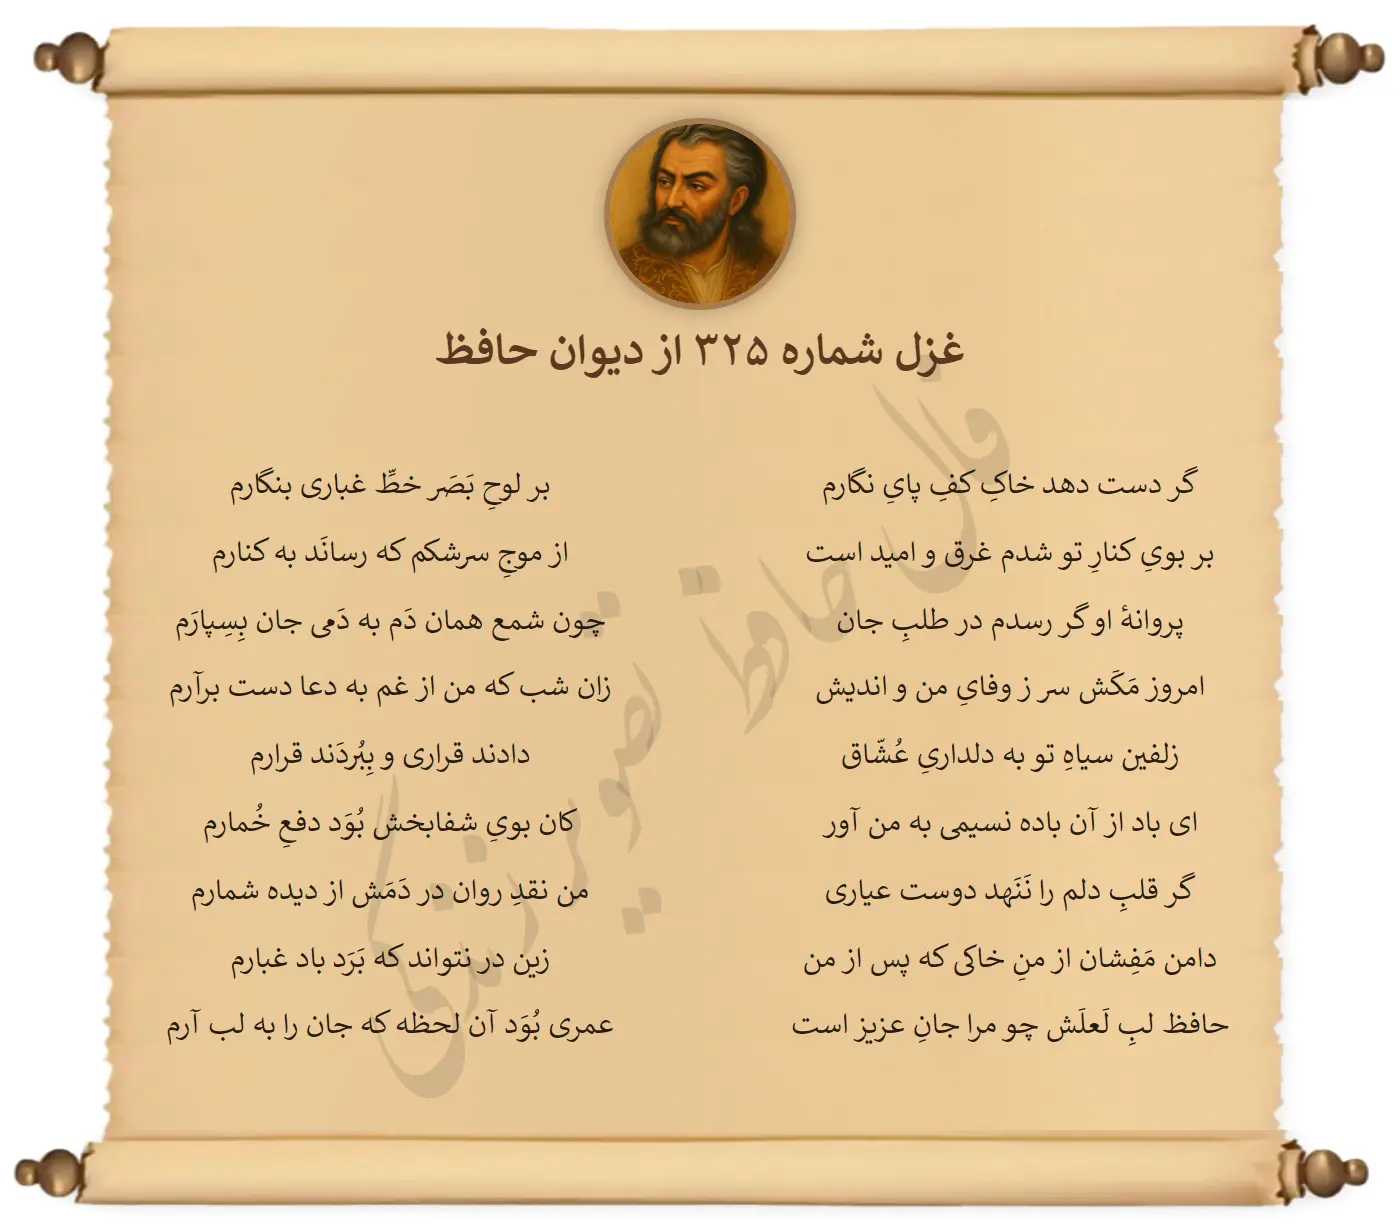 غزل شماره ۳۲۵ از دیوان حافظ
گر دست دهد خاکِ کفِ پایِ نگارم
بر لوحِ بَصَر خطِّ غباری بنگارم
بر بویِ کنارِ تو شدم غرق و امید است
از موجِ سرشکم که رسانَد به کنارم
پروانهٔ او گر رسدم در طلبِ جان
چون شمع همان دَم به دَمی جان بِسِپارَم
امروز مَکَش سر ز وفایِ من و اندیش
زان شب که من از غم به دعا دست برآرم
زلفین سیاهِ تو به دلداریِ عُشّاق
دادند قراری و بِبُردَند قرارم
ای باد از آن باده نسیمی به من آور
کان بویِ شفابخش بُوَد دفعِ خُمارم
گر قلبِ دلم را نَنَهد دوست عیاری
من نقدِ روان در دَمَش از دیده شمارم
دامن مَفِشان از منِ خاکی که پس از من
زین در نتواند که بَرَد باد غبارم
حافظ لبِ لَعلَش چو مرا جانِ عزیز است
عمری بُوَد آن لحظه که جان را به لب آرم
فال حافظ تصویر زندگی